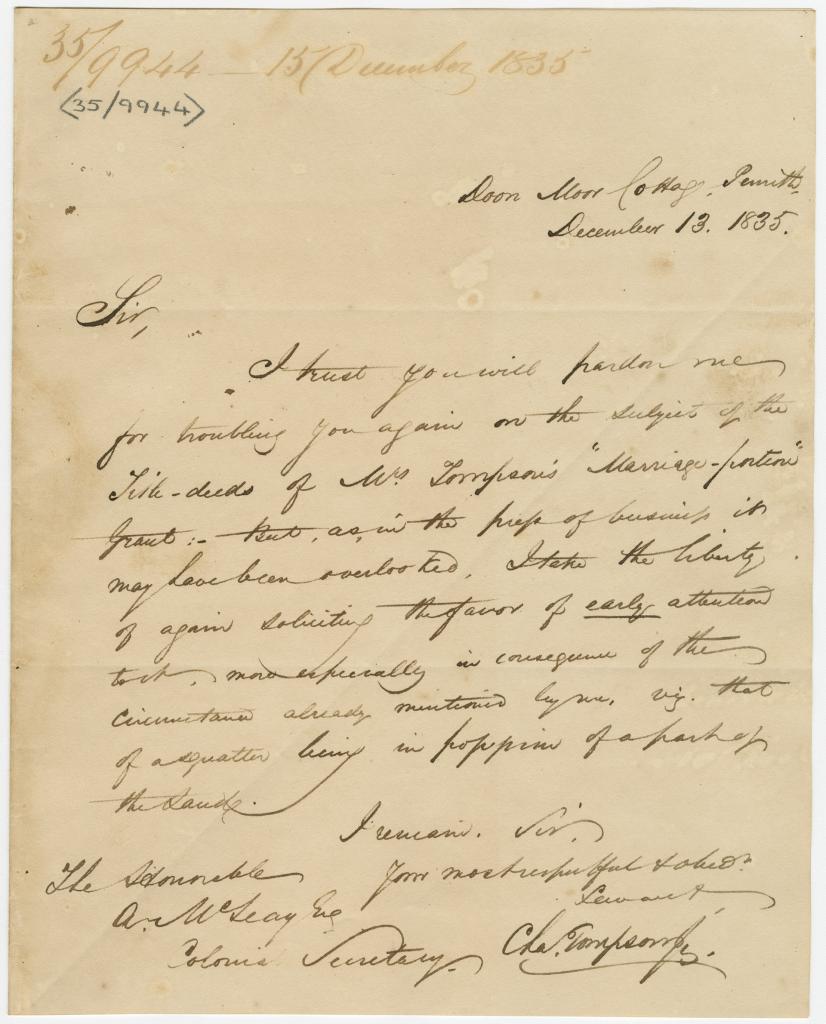 35/9944 — 15 December 1835
<35/9944>
Doon Moor Cottage, Penrith,
December 13. 1835.
Sir,
I trust you will pardon me
for troubling you again on the subject of the
Title-deeds of Mrs Tompson's "Marriage-portion"
Grant:- But, as, in the press of business it
may have been overlooked, I take the liberty
of again soliciting the favor of early attention
to it, more especially in consequence of the
circumstance already mentioned by me, viz. that
of a squatter being in possession of a part of
the Land.
I remain, Sir,
Your most respectful & obedt
Servant,
The Honourable
A. McLeay Esq
Colonial Secretary.
Chas. Tompson Jr.